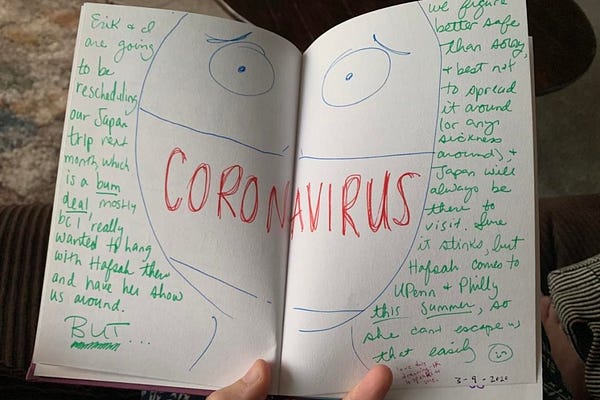 Erik & I
are going
to be
rescheduling
our Japan
trip next
month, which
is a bum
deal mostly
bc I really
wanted to hang
with Hafsah there
and have her show
us around.
BUT...
CORONAVIRUS
we figure
better safe
than sorry,
& best not
to spread
it around
(or any
sickness
around), &
Japan will
always be
there to
visit. Sure
it stinks, but
Hafsah comes to
UPenn & Philly
this summer, so
she can't escape us
that easily
3-9-2020